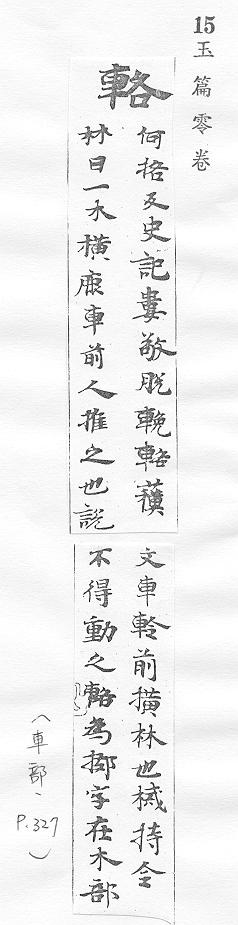 15 玉篇零卷
輅
何格反史記婁敬脫輓輅蘓
林曰一木橫廘車前人推之也說
文車軨前橫林也棫持令
不得動之輅為㧻字在木部
(車部、P.327)